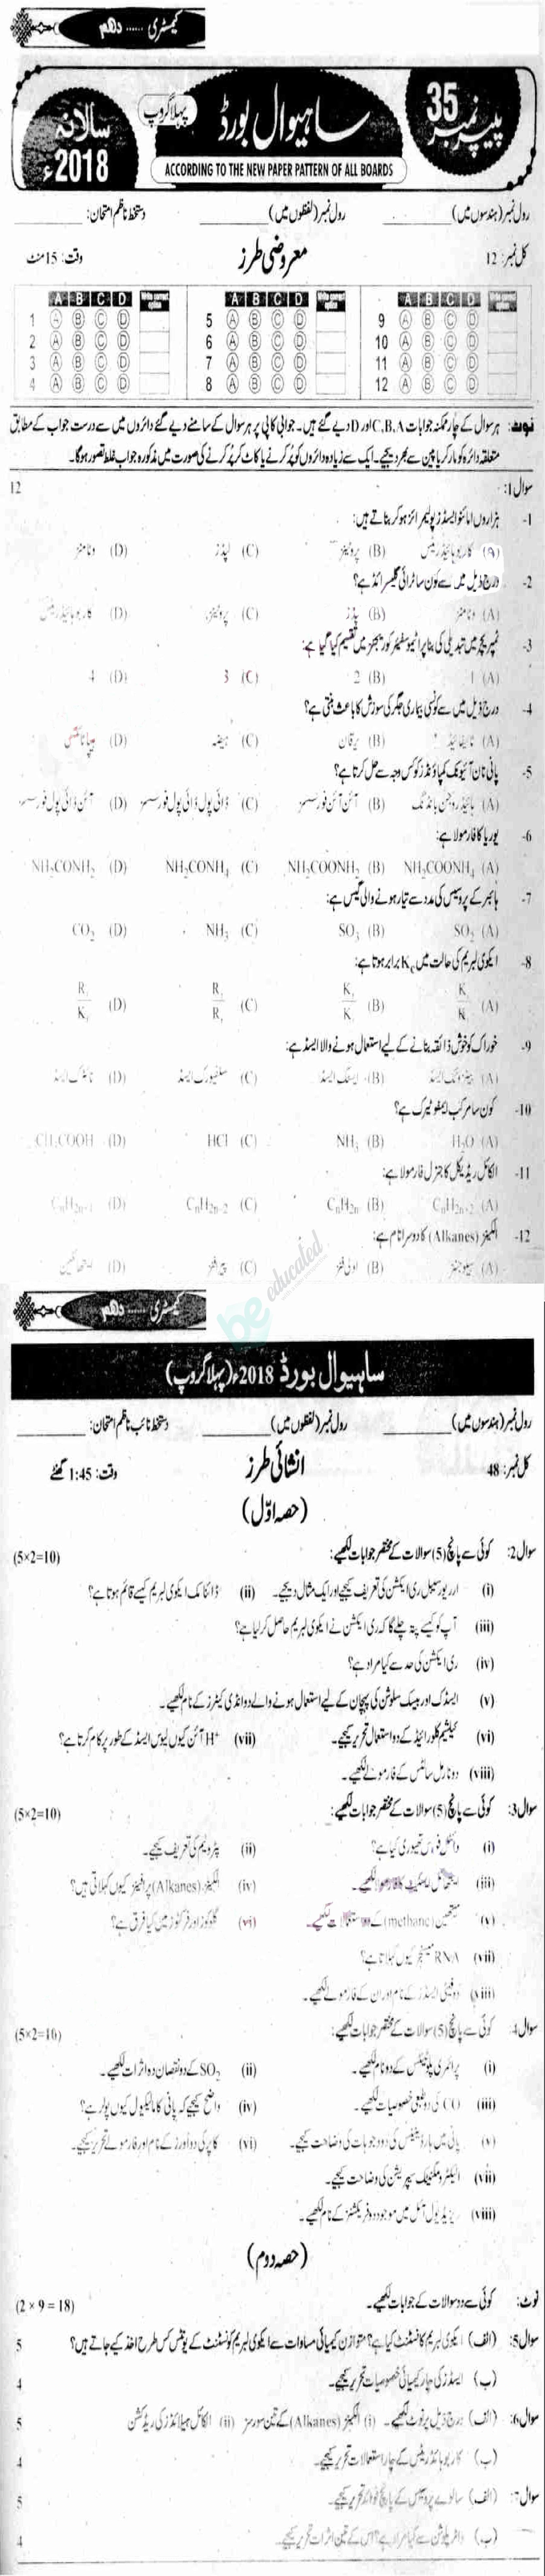 کیمسٹری ...... دہم
پیپر نمبر 35
ساہیوال بورڈ
پہلا گروپ
سالانہ 2018ء
ACCORDING TO THE NEW PAPER PATTERN OF ALL BOARDS
رول نمبر (ہندسوں میں) ________ رول نمبر (لفظوں میں) ________ دستخط ناظم امتحان: ________
کل نمبر: 12 معروضی طرز وقت: 15 منٹ
A B C D Write correct option A B C D Write correct option A B C D Write correct option
1 A B C D 5 A B C D 9 A B C D
2 A B C D 6 A B C D 10 A B C D
3 A B C D 7 A B C D 11 A B C D
4 A B C D 8 A B C D 12 A B C D
نوٹ: ہر سوال کے چار ممکنہ جوابات C,B,A اور D دیے گئے ہیں۔ جوابی کاپی پر ہر سوال کے سامنے دیے گئے دائروں میں سے درست جواب کے مطابق
متعلقہ دائرہ کو مارکر یا پین سے بھر دیجیے۔ ایک سے زیادہ دائروں کو پُر کرنے یا کاٹ کر پُر کرنے کی صورت میں مذکورہ جواب غلط تصور ہوگا۔
سوال 1: 12
1- ہزاروں امائنو ایسڈز پولیمرائز ہو کر بناتے ہیں:
(A) کاربوہائیڈریٹس (B) پروٹینز (C) لپڈز (D) وٹامنز
2- درج ذیل میں سے کون سا ٹرائی گلیسرائڈ ہے؟
(A) وٹامنز (B) لپڈز (C) پروٹینز (D) کاربوہائیڈریٹس
3- ٹمپریچر میں تبدیلی کی بنا پر اٹموسفیئر کو ریجنز میں تقسیم کیا گیا ہے:
(A) 1 (B) 2 (C) 3 (D) 4
4- درج ذیل میں سے کونسی بیماری جگر کی سوزش کا باعث بنتی ہے؟
(A) ٹائیفائیڈ (B) یرقان (C) ہیضہ (D) ہیپاٹائٹس
5- پانی نان آئیونک کمپاؤنڈز کو کس وجہ سے حل کرتا ہے؟
(A) ہائیڈروجن بانڈنگ (B) آئن آئن فورسز (C) ڈائی پول ڈائی پول فورسز (D) آئن ڈائی پول فورسز
6- یوریا کا فارمولا ہے:
(A) NH₂COONH₄ (B) NH₂COONH₂ (C) NH₂CONH₄ (D) NH₂CONH₂
7- ہابر کے پروسیس کی مدد سے تیار ہونے والی گیس ہے:
(A) SO₂ (B) SO₃ (C) NH₃ (D) CO₂
8- ایکوی لبریم کی حالت میں Kc برابر ہوتا ہے:
(A) (B) (C) (D)
9- خوراک کو خوش ذائقہ بنانے کے لیے استعمال ہونے والا ایسڈ ہے:
(A) بینزوئک ایسڈ (B) ایسٹک ایسڈ (C) سلفیورک ایسڈ (D) نائٹرک ایسڈ
10- کون سا مرکب ایمفوٹیرک ہے؟
(A) H₂O (B) NH₃ (C) HCl (D) CH₃COOH
11- الکائل ریڈیکل کا جنرل فارمولا ہے:
(A) CₙH₂ₙ₊₂ (B) CₙH₂ₙ (C) CₙH₂ₙ₋₂ (D) CₙH₂ₙ₊₁
12- الکینز (Alkanes) کا دوسرا نام ہے:
(A) (B) اولی فنز (C) پیرافنز (D)
be educated
کیمسٹری ...... دہم
ساہیوال بورڈ 2018ء (پہلا گروپ)
رول نمبر (ہندسوں میں) ________ رول نمبر (لفظوں میں) ________ دستخط نائب ناظم امتحان: ________
کل نمبر: 48 انشائی طرز وقت: 1:45 گھنٹے
(حصہ اوّل)
سوال 2: کوئی سے پانچ (5) سوالات کے مختصر جوابات لکھیے: (5×2=10)
(i) ارریورسیبل ری ایکشن کی تعریف کیجیے اور ایک مثال دیجیے۔ (ii) ڈائنامک ایکوی لبریم کیسے قائم ہوتا ہے؟
(iii) آپ کو کیسے پتہ چلے گا کہ ری ایکشن نے ایکوی لبریم حاصل کر لیا ہے؟
(iv) ری ایکشن کی حد سے کیا مراد ہے؟
(v) ایسڈک اور بیسک سلوشن کی پہچان کے لیے استعمال ہونے والے دو انڈی کیٹرز کے نام لکھیے۔
(vi) کیلشیم کلورائیڈ کے دو استعمال تحریر کیجیے۔ (vii) H⁺ آئن کیوں لیوس ایسڈ کے طور پر کام کرتا ہے؟
(viii) دو نارمل سالٹس کے فارمولے لکھیے۔
سوال 3: کوئی سے پانچ (5) سوالات کے مختصر جوابات لکھیے: (5×2=10)
(i) وائٹل فورس تھیوری کیا ہے؟ (ii) پٹرولیم کی تعریف کیجیے۔
(iii) ایتھائل ایسیٹیٹ کا فارمولا لکھیے۔ (iv) الکینز (Alkanes) پیرافینز کیوں کہلاتی ہیں؟
(v) میتھین (methane) کے دو استعمالات لکھیے۔ (vi) گلوکوز اور فرکٹوز میں کیا فرق ہے؟
(vii) RNA میسنجر کیوں کہلاتا ہے؟
(viii) دو فیٹی ایسڈز کے نام اور ان کے فارمولے لکھیے۔
سوال 4: کوئی سے پانچ (5) سوالات کے مختصر جوابات لکھیے: (5×2=10)
(i) پرائمری پلوٹینٹس کے دو نام لکھیے۔ (ii) SO₂ کے دو نقصان دہ اثرات لکھیے۔
(iii) CO کی دو طبعی خصوصیات لکھیے۔ (iv) واضح کیجیے کہ پانی کا مالیکیول کیوں پولر ہے؟
(v) پانی میں ہارڈنیس کی دو وجوہات کی وضاحت کیجیے۔ (vi) کاپر کی دو اورز کے نام اور فارمولے تحریر کیجیے۔
(vii) الیکٹرومیگنیٹک سیپریشن کی وضاحت کیجیے۔
(viii) ریزیڈیول آئل میں موجود دو فریکشنز کے نام لکھیے۔
(حصہ دوم)
نوٹ: کوئی سے دو سوالات کے جوابات لکھیے۔ (2 × 9 = 18)
سوال 5: (الف) ایکوی لبریم کانسٹنٹ کیا ہے؟ متوازن کیمیائی مساوات سے ایکوی لبریم کونسٹنٹ کے یونٹس کس طرح اخذ کیے جاتے ہیں؟ 5
(ب) ایسڈز کی چار کیمیائی خصوصیات تحریر کیجیے۔ 4
سوال 6: (الف) درج ذیل پر نوٹ لکھیے۔ (i) الکینز (Alkanes) کے تین سورسز (ii) الکائل ہیلائڈز کی ریڈکشن 5
(ب) کاربوہائڈریٹس کے چار استعمالات تحریر کیجیے۔ 4
سوال 7: (الف) سالوے پروسیس کے پانچ فوائد تحریر کیجیے۔ 5
(ب) واٹر پلوشن سے کیا مراد ہے؟ اس کے تین اثرات تحریر کیجیے۔ 4